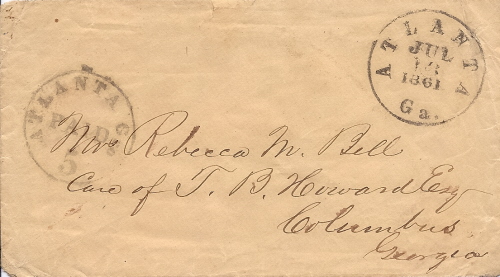 ATLANTA
JUL
13
1861
Ga.
ATLANTA G
PAID
5
Mrs Rebecca M. Bell
Care of T. B. Howard Esq
Columbus
Georgia